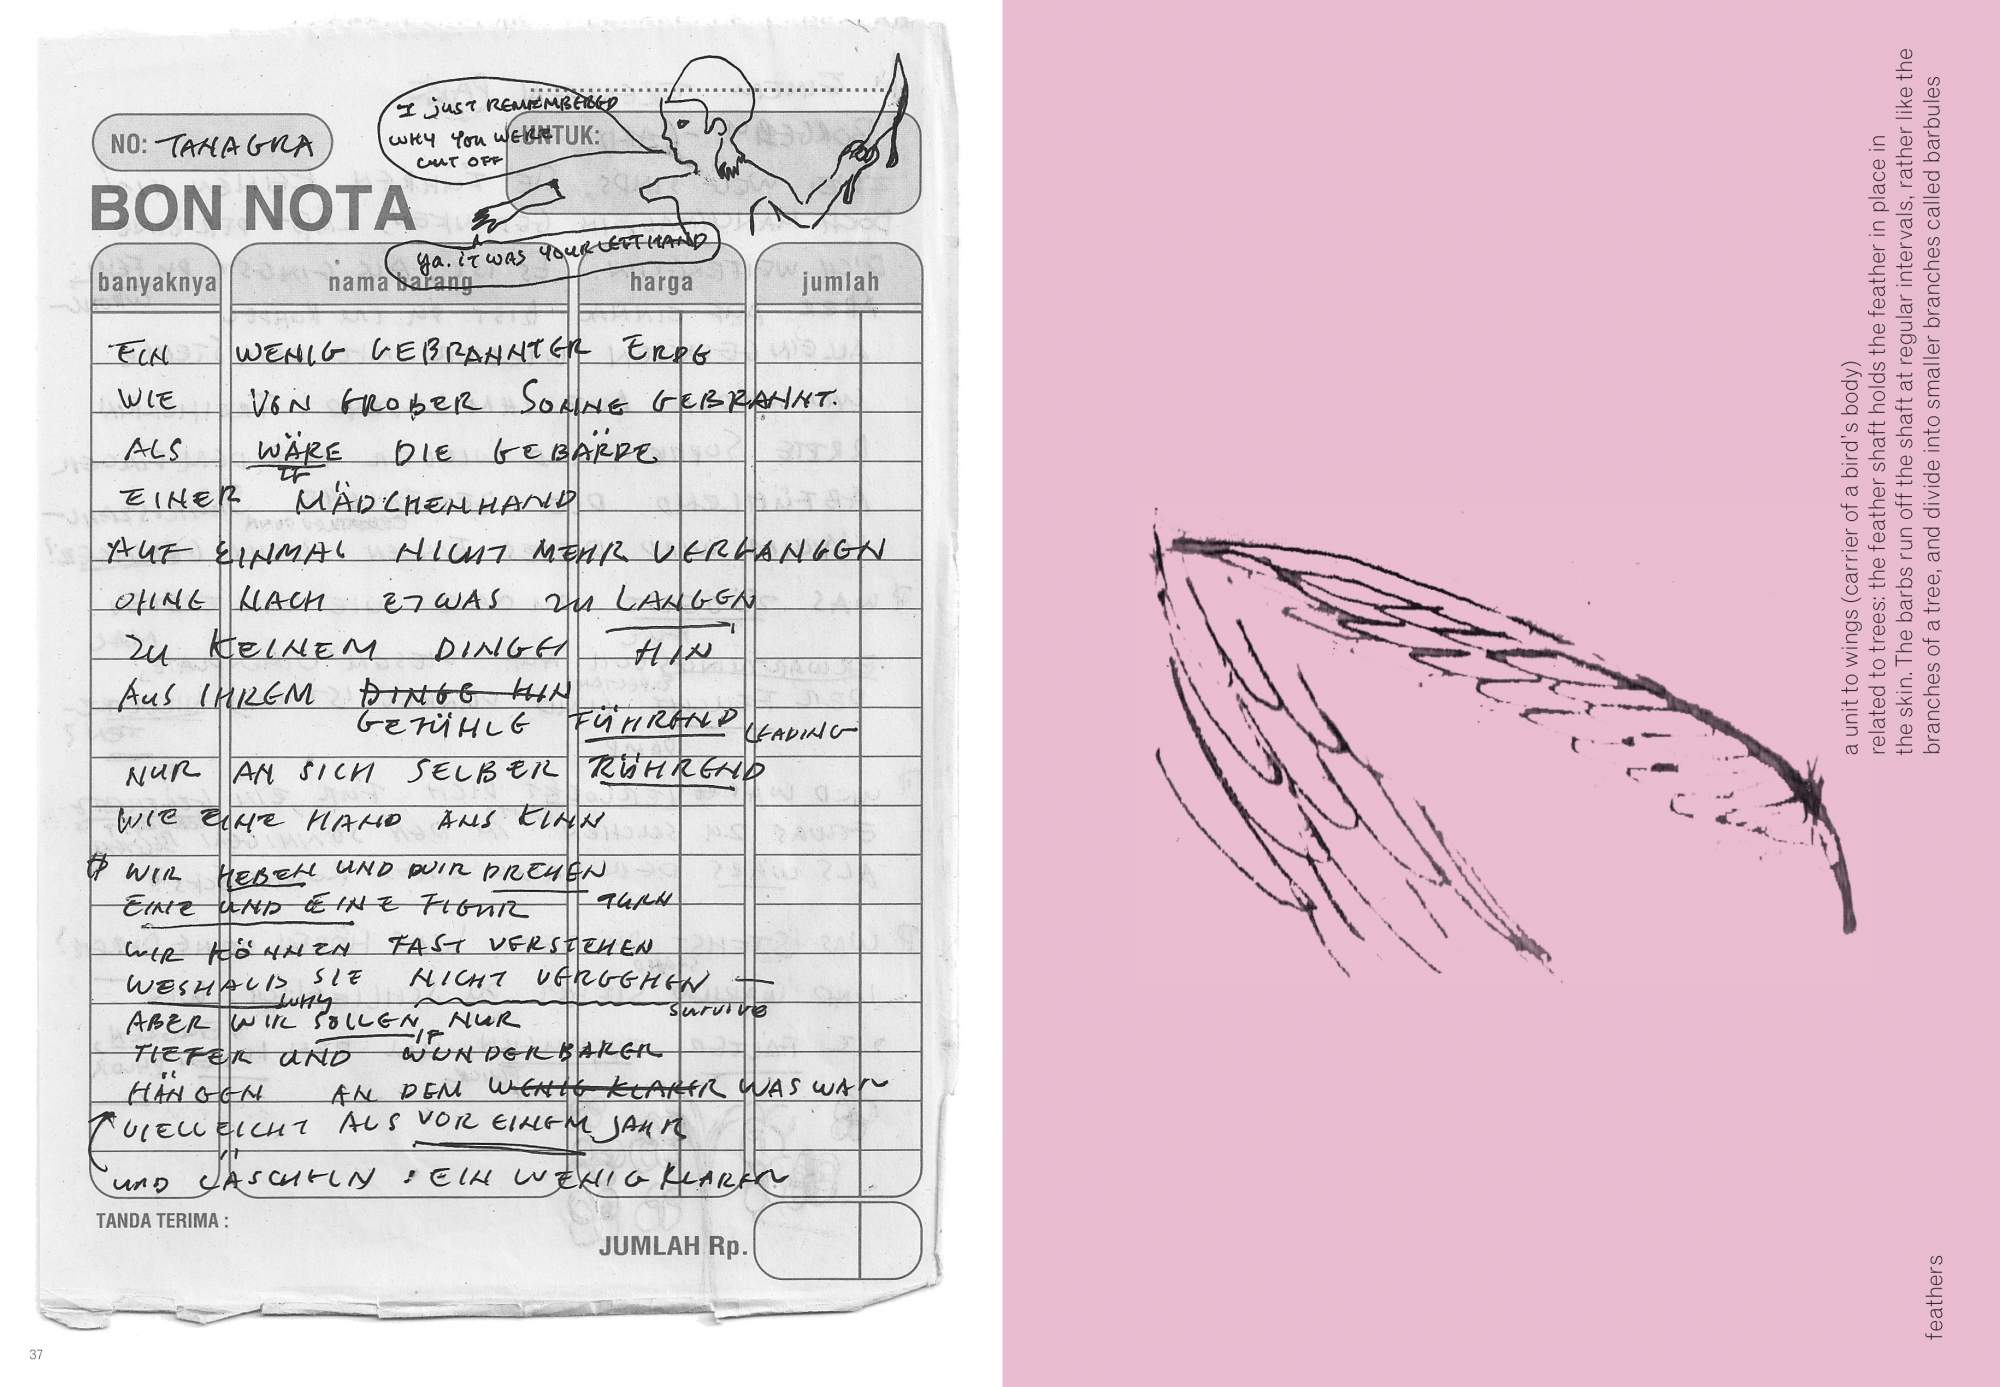 I JUST REMEMBERED
WHY YOU WERE
CUT OFF
NO: TANAGRA
UNTUK:
BON NOTA
ya. IT WAS YOUR LEFT HAND
banyaknya nama barang harga jumlah
EIN WENIG GEBRANNTER ERDE
WIE VON GROßER SONNE GEBRANNT.
ALS WÄRE DIE GEBÄRDE
IF
EINER MÄDCHENHAND
AUF EINMAL NICHT MEHR VERGANGEN
OHNE NACH ETWAS ZU LANGEN
ZU KEINEM DINGE HIN
AUS IHREM DINGE HIN
GEFÜHLE FÜHREND LEADING
NUR AN SICH SELBER RÜHREND
WIE EINE HAND ANS KINN
WIR HEBEN UND WIR DREHEN
EINE UND EINE FIGUR TURN
WIR KÖNNEN FAST VERSTEHEN
WESHALB SIE NICHT VERGEHEN —
WHY SURVIVE
ABER WIR SOLLEN NUR
IF
TIEFER UND WUNDERBARER
HÄNGEN AN DEM WENIG KLARER WAS WAR
VIELLEICHT ALS VOR EINEM JAHR
UND LÄSCHELN : EIN WENIG KLARER
TANDA TERIMA :
JUMLAH Rp.
37
a unit to wings (carrier of a bird's body)
related to trees: the feather shaft holds the feather in place in
the skin. The barbs run off the shaft at regular intervals, rather like the
branches of a tree, and divide into smaller branches called barbules
feathers